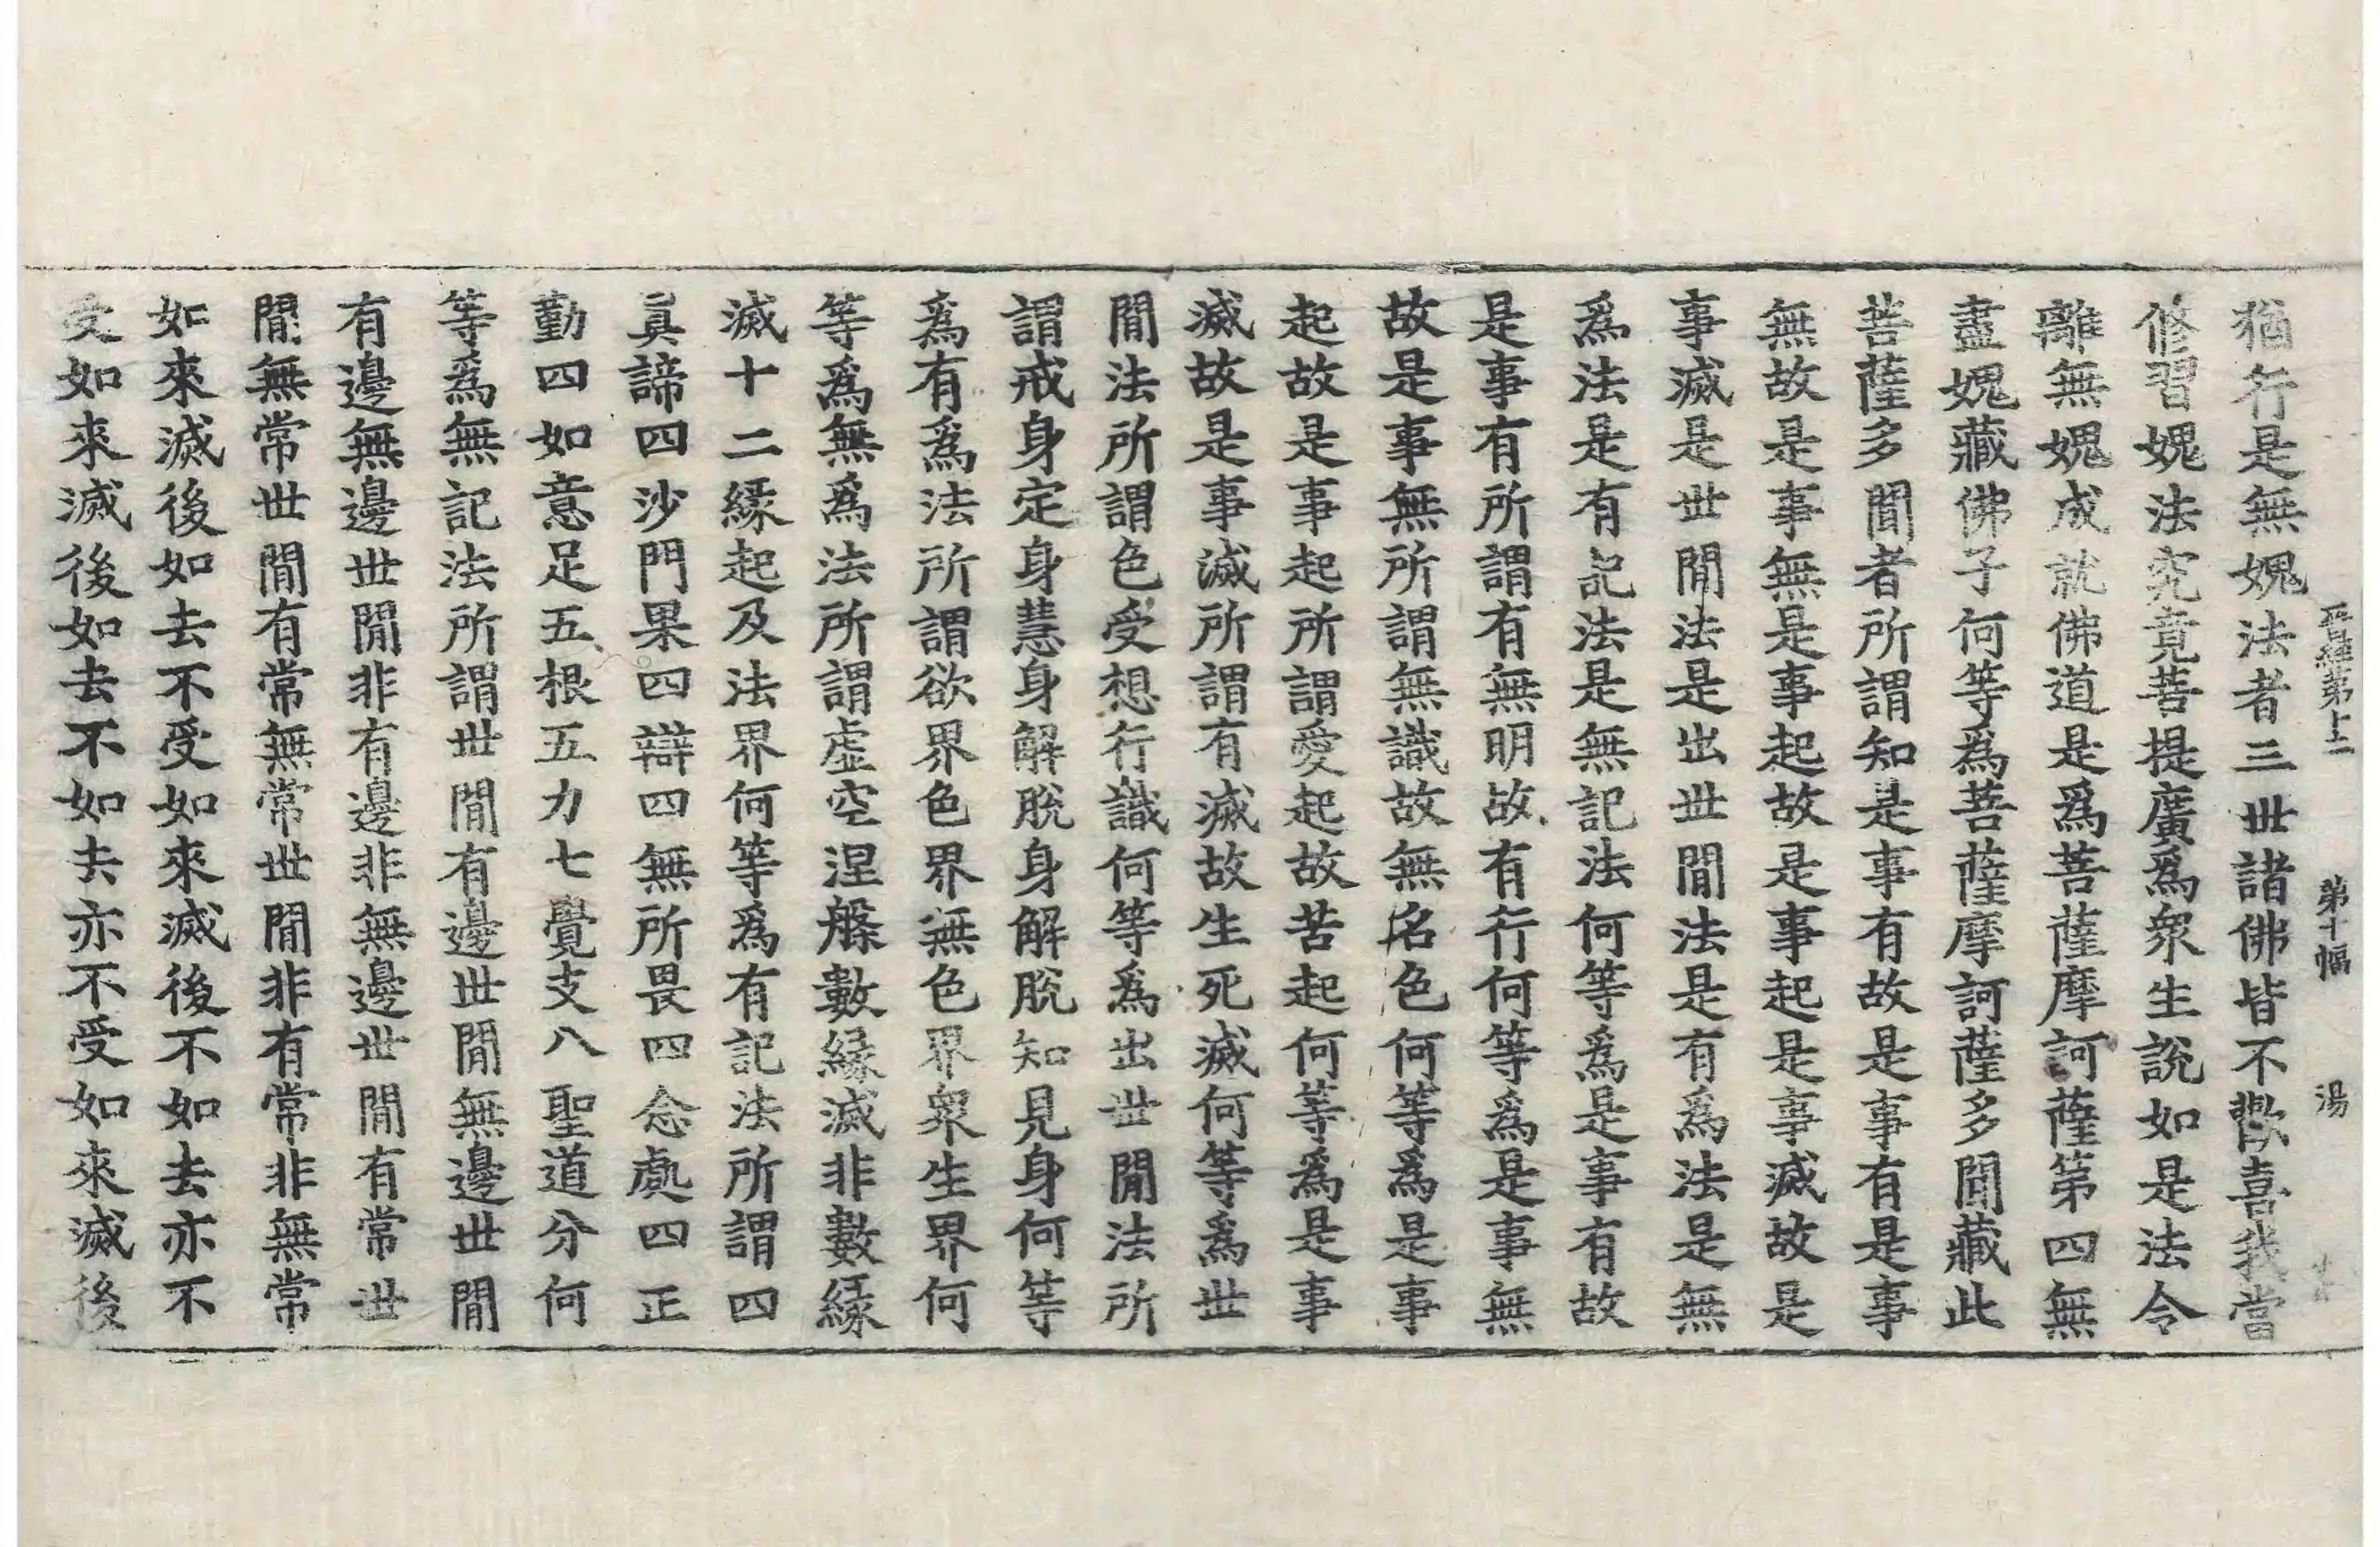 晉經第十二　第十幅　湯
猶行是無媿法者三世諸佛皆不歡喜我當
修習媿法究竟菩提廣爲衆生說如是法令
離無媿成就佛道是爲菩薩摩訶薩第四無
盡媿藏佛子何等爲菩薩摩訶薩多聞藏此
菩薩多聞者所謂知是事有故是事有是事
無故是事無是事起故是事起是事滅故是
事滅是世閒法是出世閒法是有爲法是無
爲法是有記法是無記法何等爲是事有故
是事有所謂有無明故有行何等爲是事無
故是事無所謂無識故無名色何等爲是事
起故是事起所謂愛起故苦起何等爲是事
滅故是事滅所謂有滅故生死滅何等爲世
閒法所謂色受想行識何等爲出世閒法所
謂戒身定身慧身解脫身解脫知見身何等
爲有爲法所謂欲界色界無色界衆生界何
等爲無爲法所謂虛空涅槃數緣滅非數緣
滅十二緣起及法界何等爲有記法所謂四
眞諦四沙門果四辯四無所畏四念處四正
勤四如意足五根五力七覺支八聖道分何
等爲無記法所謂世閒有邊世閒無邊世閒
有邊無邊世閒非有邊非無邊世閒有常世
閒無常世閒有常無常世閒非有常非無常
如來滅後如去不受如來滅後不如去亦不
受如來滅後如去不如去亦不受如來滅後